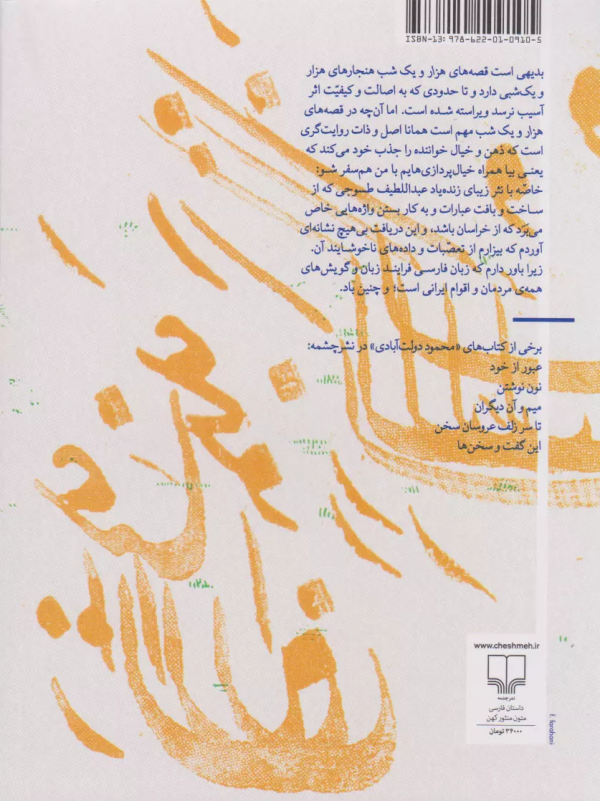 ISBN-13: 978-622-01-0910-5
بدیهی است قصه‌های هزار و یک شب هنجارهای هزار
و یک‌شبی دارد و تا حدودی که به اصالت و کیفیّت اثر
آسیب نرسد ویراسته شده است. اما آن‌چه در قصه‌های
هزار و یک شب مهم است همانا اصل و ذات روایت‌گری
است که ذهن و خیال خواننده را جذب خود می‌کند که
یعنی بیا همراه خیال‌پردازی‌هایم با من هم‌سفر شو:
خاصّه با نثر زیبای زنده‌یاد عبداللطیف طسوجی که از
ساخت و بافت عبارات و به کار بستن واژه‌هایی خاص
می‌برد که از خراسان باشد، و این دریافت بی‌هیچ نشانه‌ای
آوردم که بیزارم از تعصبات و داده‌های ناخوشایند آن.
زیرا باور دارم که زبان فارسی فرایند زبان و گویش‌های
همه‌ی مردمان و اقوام ایرانی است؛ و چنین باد.
برخی از کتاب‌های «محمود دولت‌آبادی» در نشرچشمه:
عبور از خود
نون نوشتن
میم و آن دیگران
تا سر زلف عروسان سخن
این گفت و سخن‌ها
www.cheshmeh.ir
نشرچشمه
داستان فارسی
متون منثور کهن
۳۴۰۰۰ تومان
E. farahani